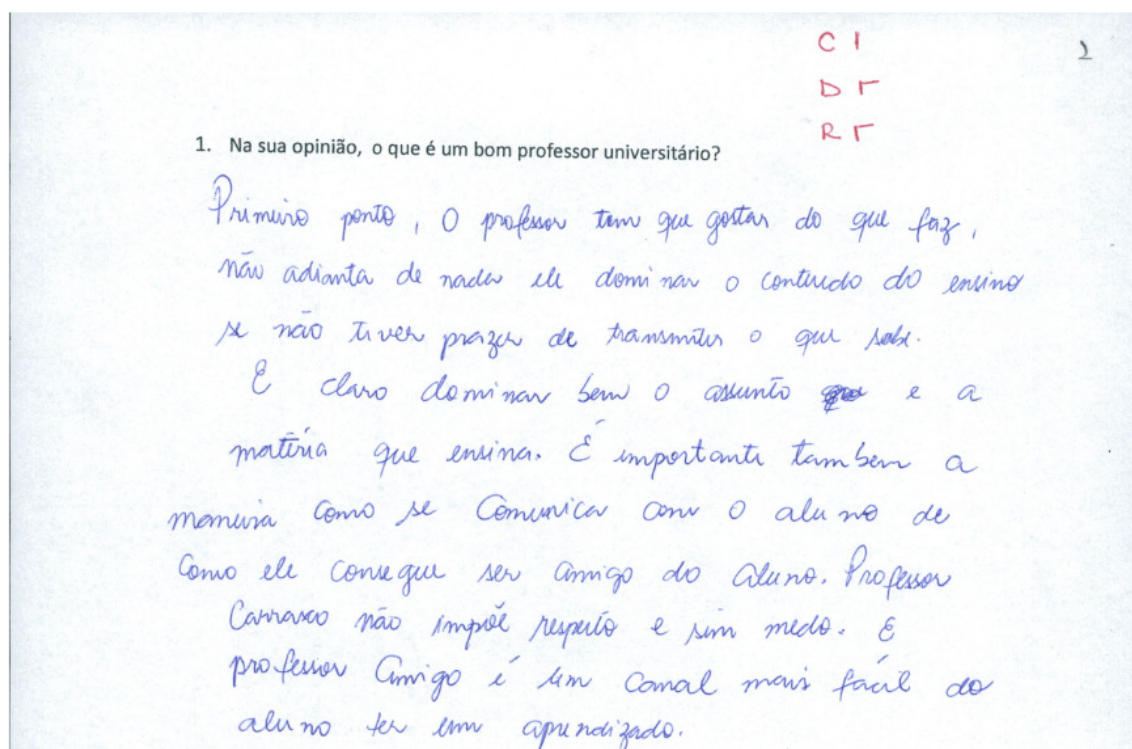 C I
2
D Γ
R Γ
1. Na sua opinião, o que é um bom professor universitário?
Primeiro ponto, O professor tem que gostar do que faz,
não adianta de nada ele dominar o conteudo do ensino
se não tiver prazer de transmitir o que sabe.
E claro dominar bem o assunto e a
matéria que ensina. É importante tambem a
maneira como se Comunica com o aluno de
Como ele consegue ser amigo do aluno. Professor
Carrasco não impõe respeito e sim medo. E
professor Amigo é um canal mais fácil do
aluno ter um aprendizado.